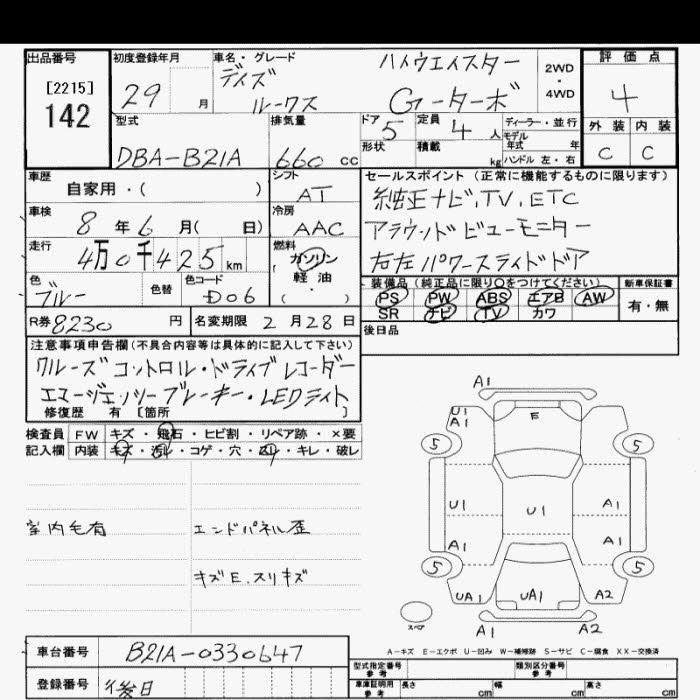 出品番号 初度登録年月 車名・グレード 評価点
[2215] 142
29 月
デイズ ルークス
ハイウエイスター Gーターボ
2WD・4WD
4
型式 排気量 ドア 定員 ディーラー・並行
DBA-B21A 660 cc 5 4 人
モデル年式 年
形状 積載 kg ハンドル 左・右
外装 内装
C C
車歴 シフト セールスポイント (正常に機能するものに限ります)
自家用・( ) AT 純正ナビ.TV.ETC
車検 冷房
8年6月( 日) AAC アラウンドビューモニター
走行 燃料
4万0千425km ガソリン 右左パワースライドドア
軽油・( )
色 色替 色コード
ブルー D06
装備品(純正品に限り○をつけてください) 新車保証書
PS PW ABS エアB AW 有・無
SR ナビ TV カワ
R券 8230 円 名変期限 2月28日 後日品
注意事項申告欄(不具合内容等は具体的に記入して下さい)
クルーズコントロル・ドライブレコーダー
エマージェンシーブレーキ・LEDライト
修復歴 有 [箇所 ]
検査員 FW キズ・飛石・ヒビ割・リペア跡・×要
記入欄 内装 キズ・汚レ・コゲ・穴・・キレ・破レ
室内毛有 エンドパネル歪
キズE.スリキズ
A1
U1 A1 E
5 5
U1 U1 A1
A1 A1
5 5
UA1 UA1 A2
スペア A1 A2
A-キズ E-エクボ U-凹み W-補修跡 S-サビ C-腐食 XX-交換済
車台番号 B21A-0330647
型式指定番号 参考 類別区分番号 参考
登録番号 後日
車庫証明用 参考 長さ cm 幅 cm 高さ cm